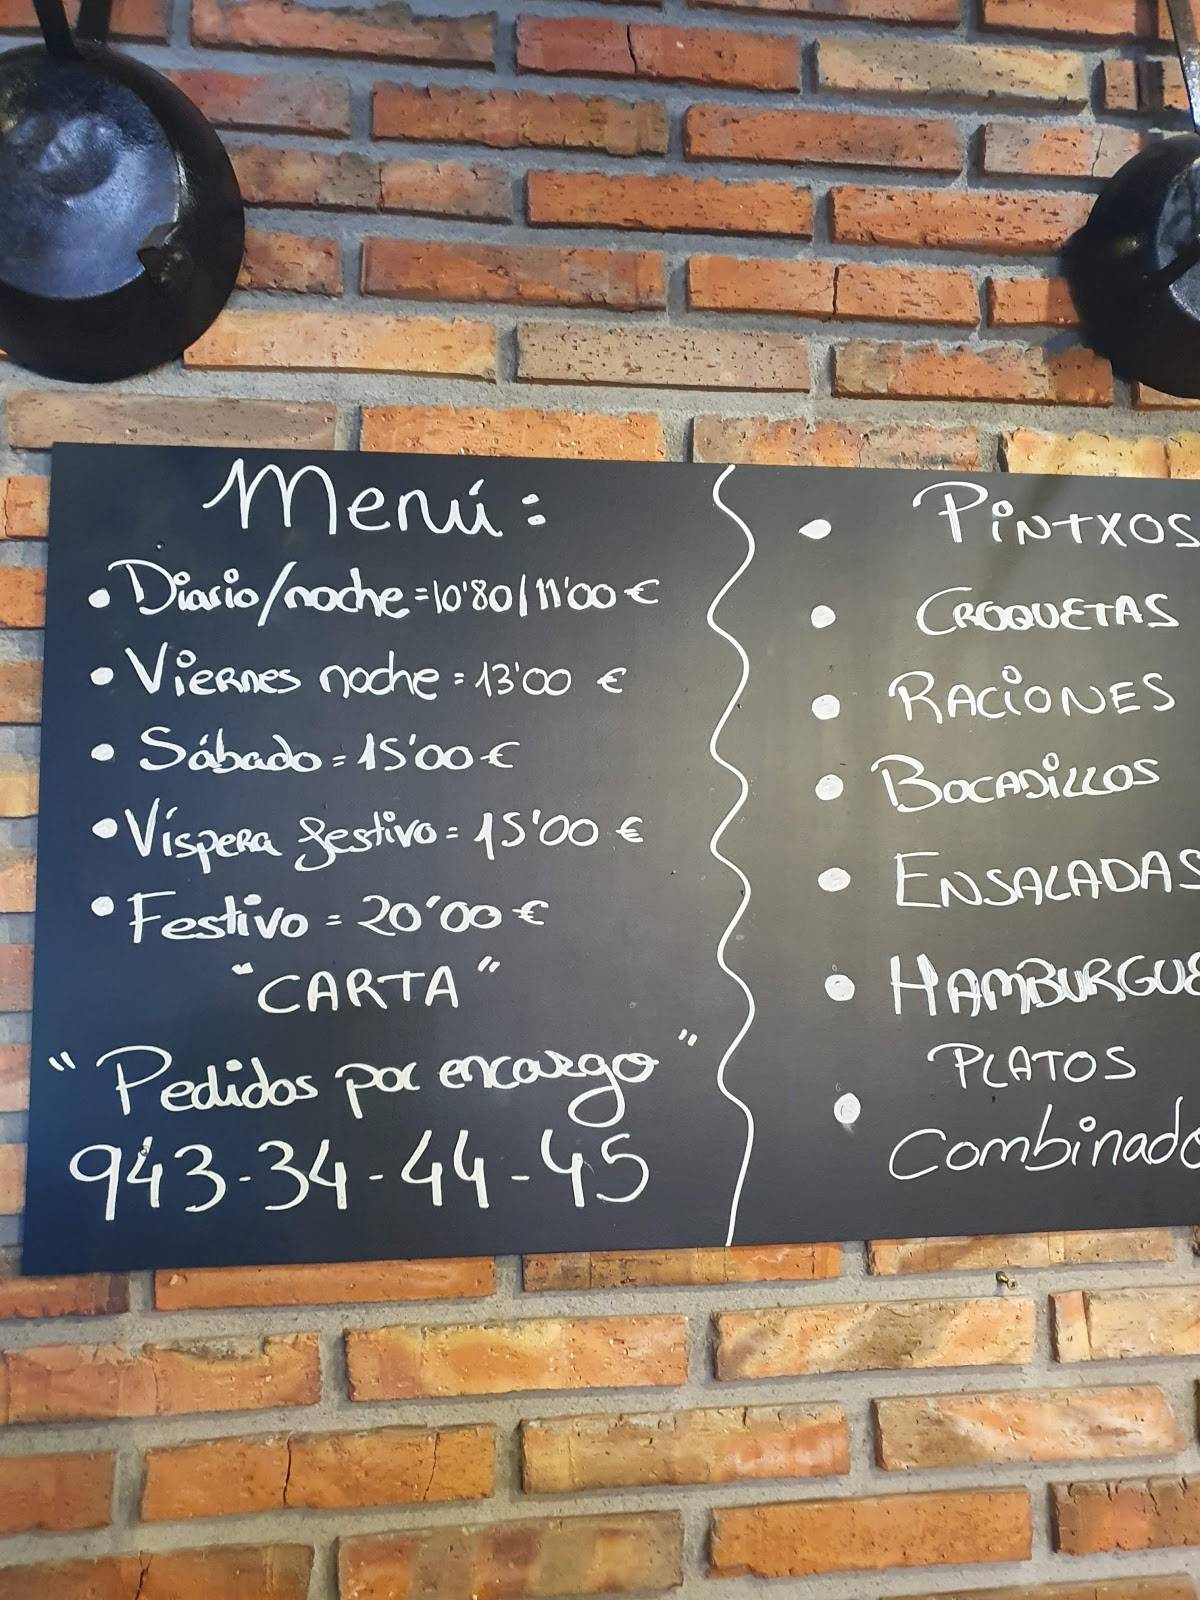 Menú:
• Diario/noche = 10'80/11'00 €
• Viernes noche = 13'00 €
• Sábado = 15'00 €
• Víspera festivo = 15'00 €
• Festivo = 20'00 €
"CARTA"
"Pedidos por encargo"
943-34-44-45
• PINTXOS
• CROQUETAS
• RACIONES
• BOCADILLOS
• ENSALADAS
• HAMBURGUE
PLATOS
• Combinado